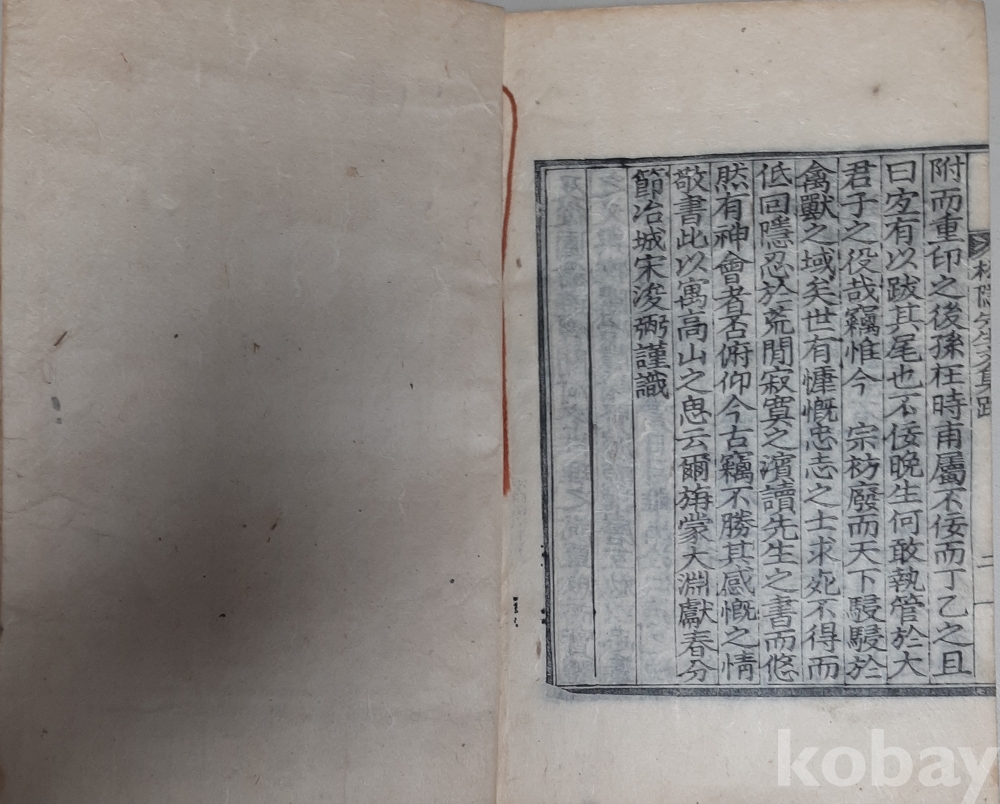 附而重印之後孫枉時甫屬不佞而丁乙之且
曰宜有以跋其尾也不佞晚生何敢執管於大
君子之役哉竊惟今 宗祊廢而天下駸駸於
禽獸之域矣世有慷慨忠志之士求死不得而
低回隱忍於荒閒寂寞之濱讀先生之書而悠
然有神會者否俯仰今古竊不勝其感慨之情
敬書此以寓高山之思云爾旃蒙大淵獻春分
節冶城宋浚弼謹識
隱先生文集跋
二
kobay